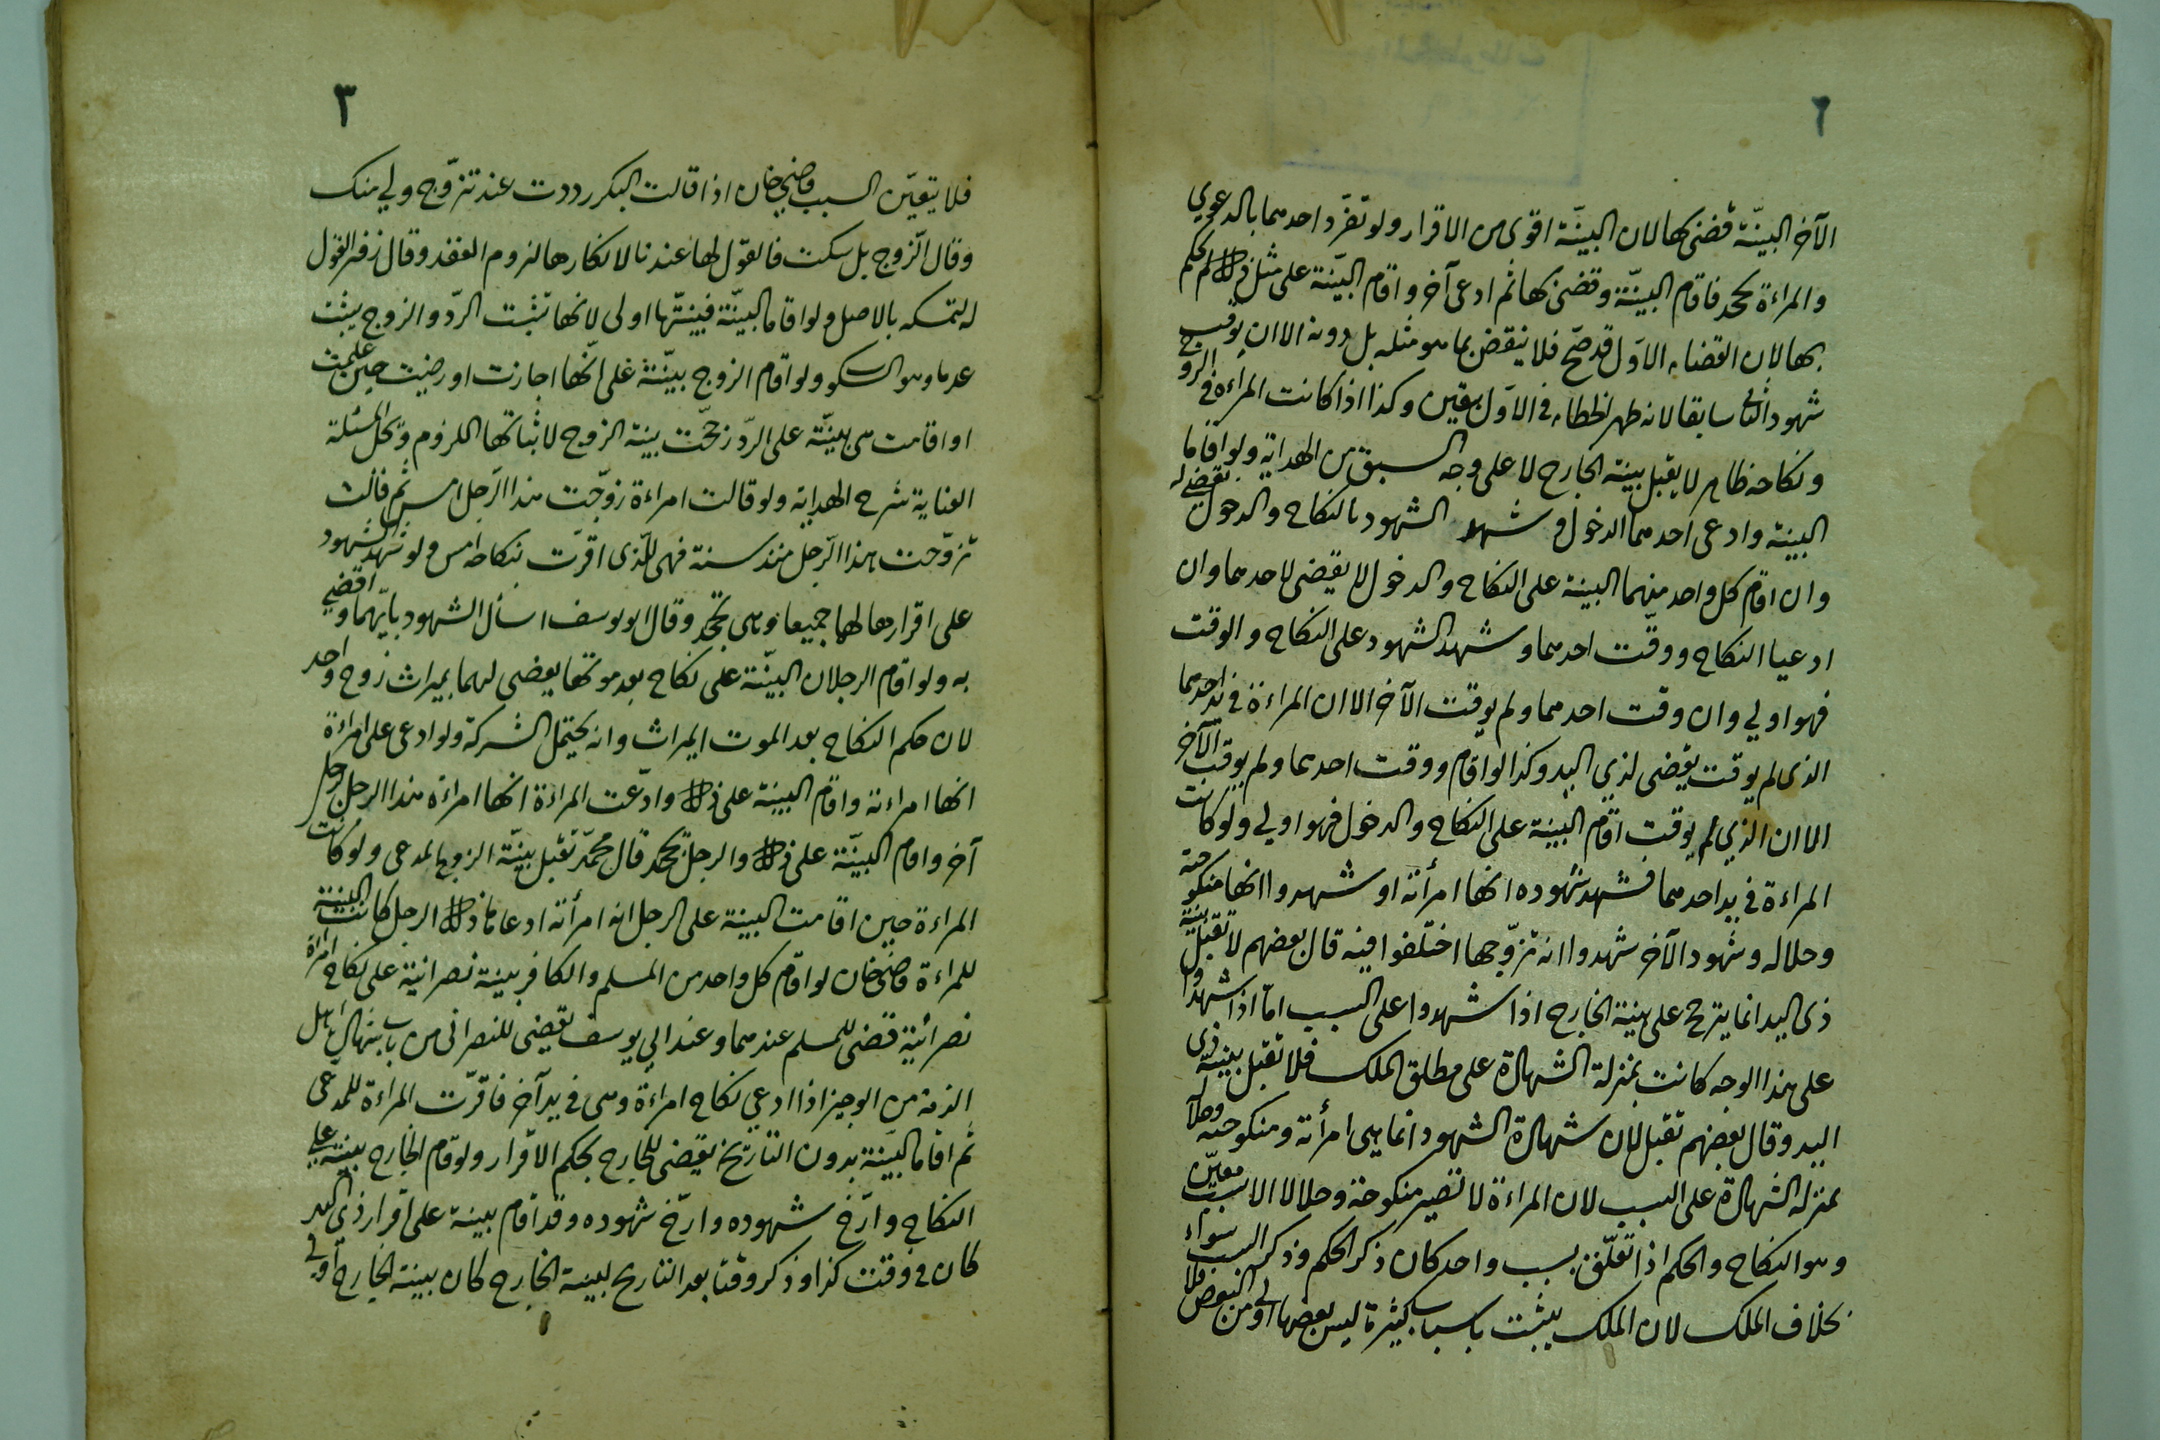 ٢
الآخر البينّة قضى بها لان البينّة اقوى من الاقرار ولو تفرّد احدهما بالدعوي
والمراءة تجحد فاقام البينّة وقضى بها ثم ادعى آخر واقام البيّنة على مثل ذلك لم يحكم
بها لان القضاء الاوّل قد صحّ فلا ينقض بما هو مثله بل دونه الا ان يوقت
شهود الثاني سابقا لانه ظهر الخطاء في الاوّل بيقين وكذا اذا كانت المراءة في يد الزوج
ونكاحه ظاهر لا يقبل بينة الخارج لا على وجه السبق من الهداية ولو اقاما
البينة وادعى احدهما الدخول وشهد الشهود بالنكاح والدخول يقضى له
وان اقام كل واحد منهما البينة على النكاح والدخول لا يقضى لاحدهما وان
ادعيا النكاح ووقّت احدهما وشهد الشهود على النكاح والوقت
فهو اولي وان وقت احدهما ولم يوقت الآخر الا ان المراءة في يد احدهما
الذى لم يوقت يقضى لذي اليد وكذا لو اقام ووقت احدهما ولم يوقت الآخر
الا ان الذي لم يوقت اقام البينة على النكاح والدخول فهو اولي ولو كانت
المراءة في يد احدهما فشهد شهوده انها امرأته او شهدوا انها منكوحته
وحلاله وشهود الآخر شهدوا انه تزوّجها اختلفوا فيه قال بعضهم لا تقبل بينة
ذى اليد انما يترجح على بينة الخارج اذا شهدوا على السبب امّا اذا شهدوا
على هذا الوجه كانت بمنزلة الشهادة على مطلق الملك فلا تقبل بينة ذى
اليد وقال بعضهم تقبل لان شهادة الشهود انما هى امرأته ومنكوحته وحلاله
بمنزلة الشهادة على السبب لان المراءة لا تصير منكوحة وحلالا الا بسبب معيّن
وهو النكاح والحكم اذا تعلّق بسبب واحد كان ذكر الحكم وذكر السبب سواء
بخلاف الملك لان الملك يثبت باسباب كثيرة ليس بعضها اولى من البعض فلا
٣
فلا يتعيّن السبب قاضيخان اذا قالت البكر رددت عند تزوّج ولي منك
وقال الزوج بل سكت فالقول لها عندنا لانكارها لزوم العقد وقال زفر القول
له لتمسكه بالاصل ولو اقاما البيّنة فبيّنتها اولى لانها تثبت الردّ والزوج يثبت
عدما وهو السكوت ولو اقام الزوج بيّنة على انّها اجازت او رضيت حين علمت
او اقامت هى بينّة على الردّ رجحّت بينة الزوج لاثباتها اللزوم وتحل المسئلة
العناية شرح الهداية ولو قالت امراءة زوّجت هذا الرّجل امس ثم قالت
تزوّجت هذا الرّجل منذ سنة فهى للّذى اقرّت بنكاحه امس ولو شهد الشهود
على اقرارها لهما جميعا وهى تجحد وقال ابو يوسف اسأل الشهود بايّهما واقضي
به ولو اقام الرجلان البيّنة على نكاح بعد موتها يقضى لهما بميراث زوج واحد
لان حكم النكاح بعد الموت الميراث وانه يحتمل الشركة ولو ادعى على امراءة
انها امراءته واقام البينة على ذلك وادّعت المراءة انها امراءة هذا الرجل رجل
آخر واقام البيّنة على ذلك والرجل يجحد قال محمّد تقبل بيّنة الزوج المدعى ولو كانت
المراءة حين اقامت البينة على الرجل انه امرأته ادعاها ذلك الرجل كانت البينة
للمراءة قاضيخان لو اقام كل واحد من المسلم والكافر بينة نصرانية على نكاح امراة
نصرانية قضى للمسلم عندهما وعند ابي يوسف يقضى للنصرانى من باب اهل
الذمة من الوجيز اذا ادعي نكاح امراءة وهى في يد آخر فاقرّت المراءة للمدعى
ثم اقاما البيّنة بدون التاريخ يقضى للخارج بحكم الاقرار ولو اقام الخارج بينة على
النكاح وارّخ شهوده وارّخ شهوده وقد اقام بينة على اقرار ذي اليد
كان في وقت كذا وذكر وقتا بعد التاريخ لبينة الخارج كان بينة الخارج اولي